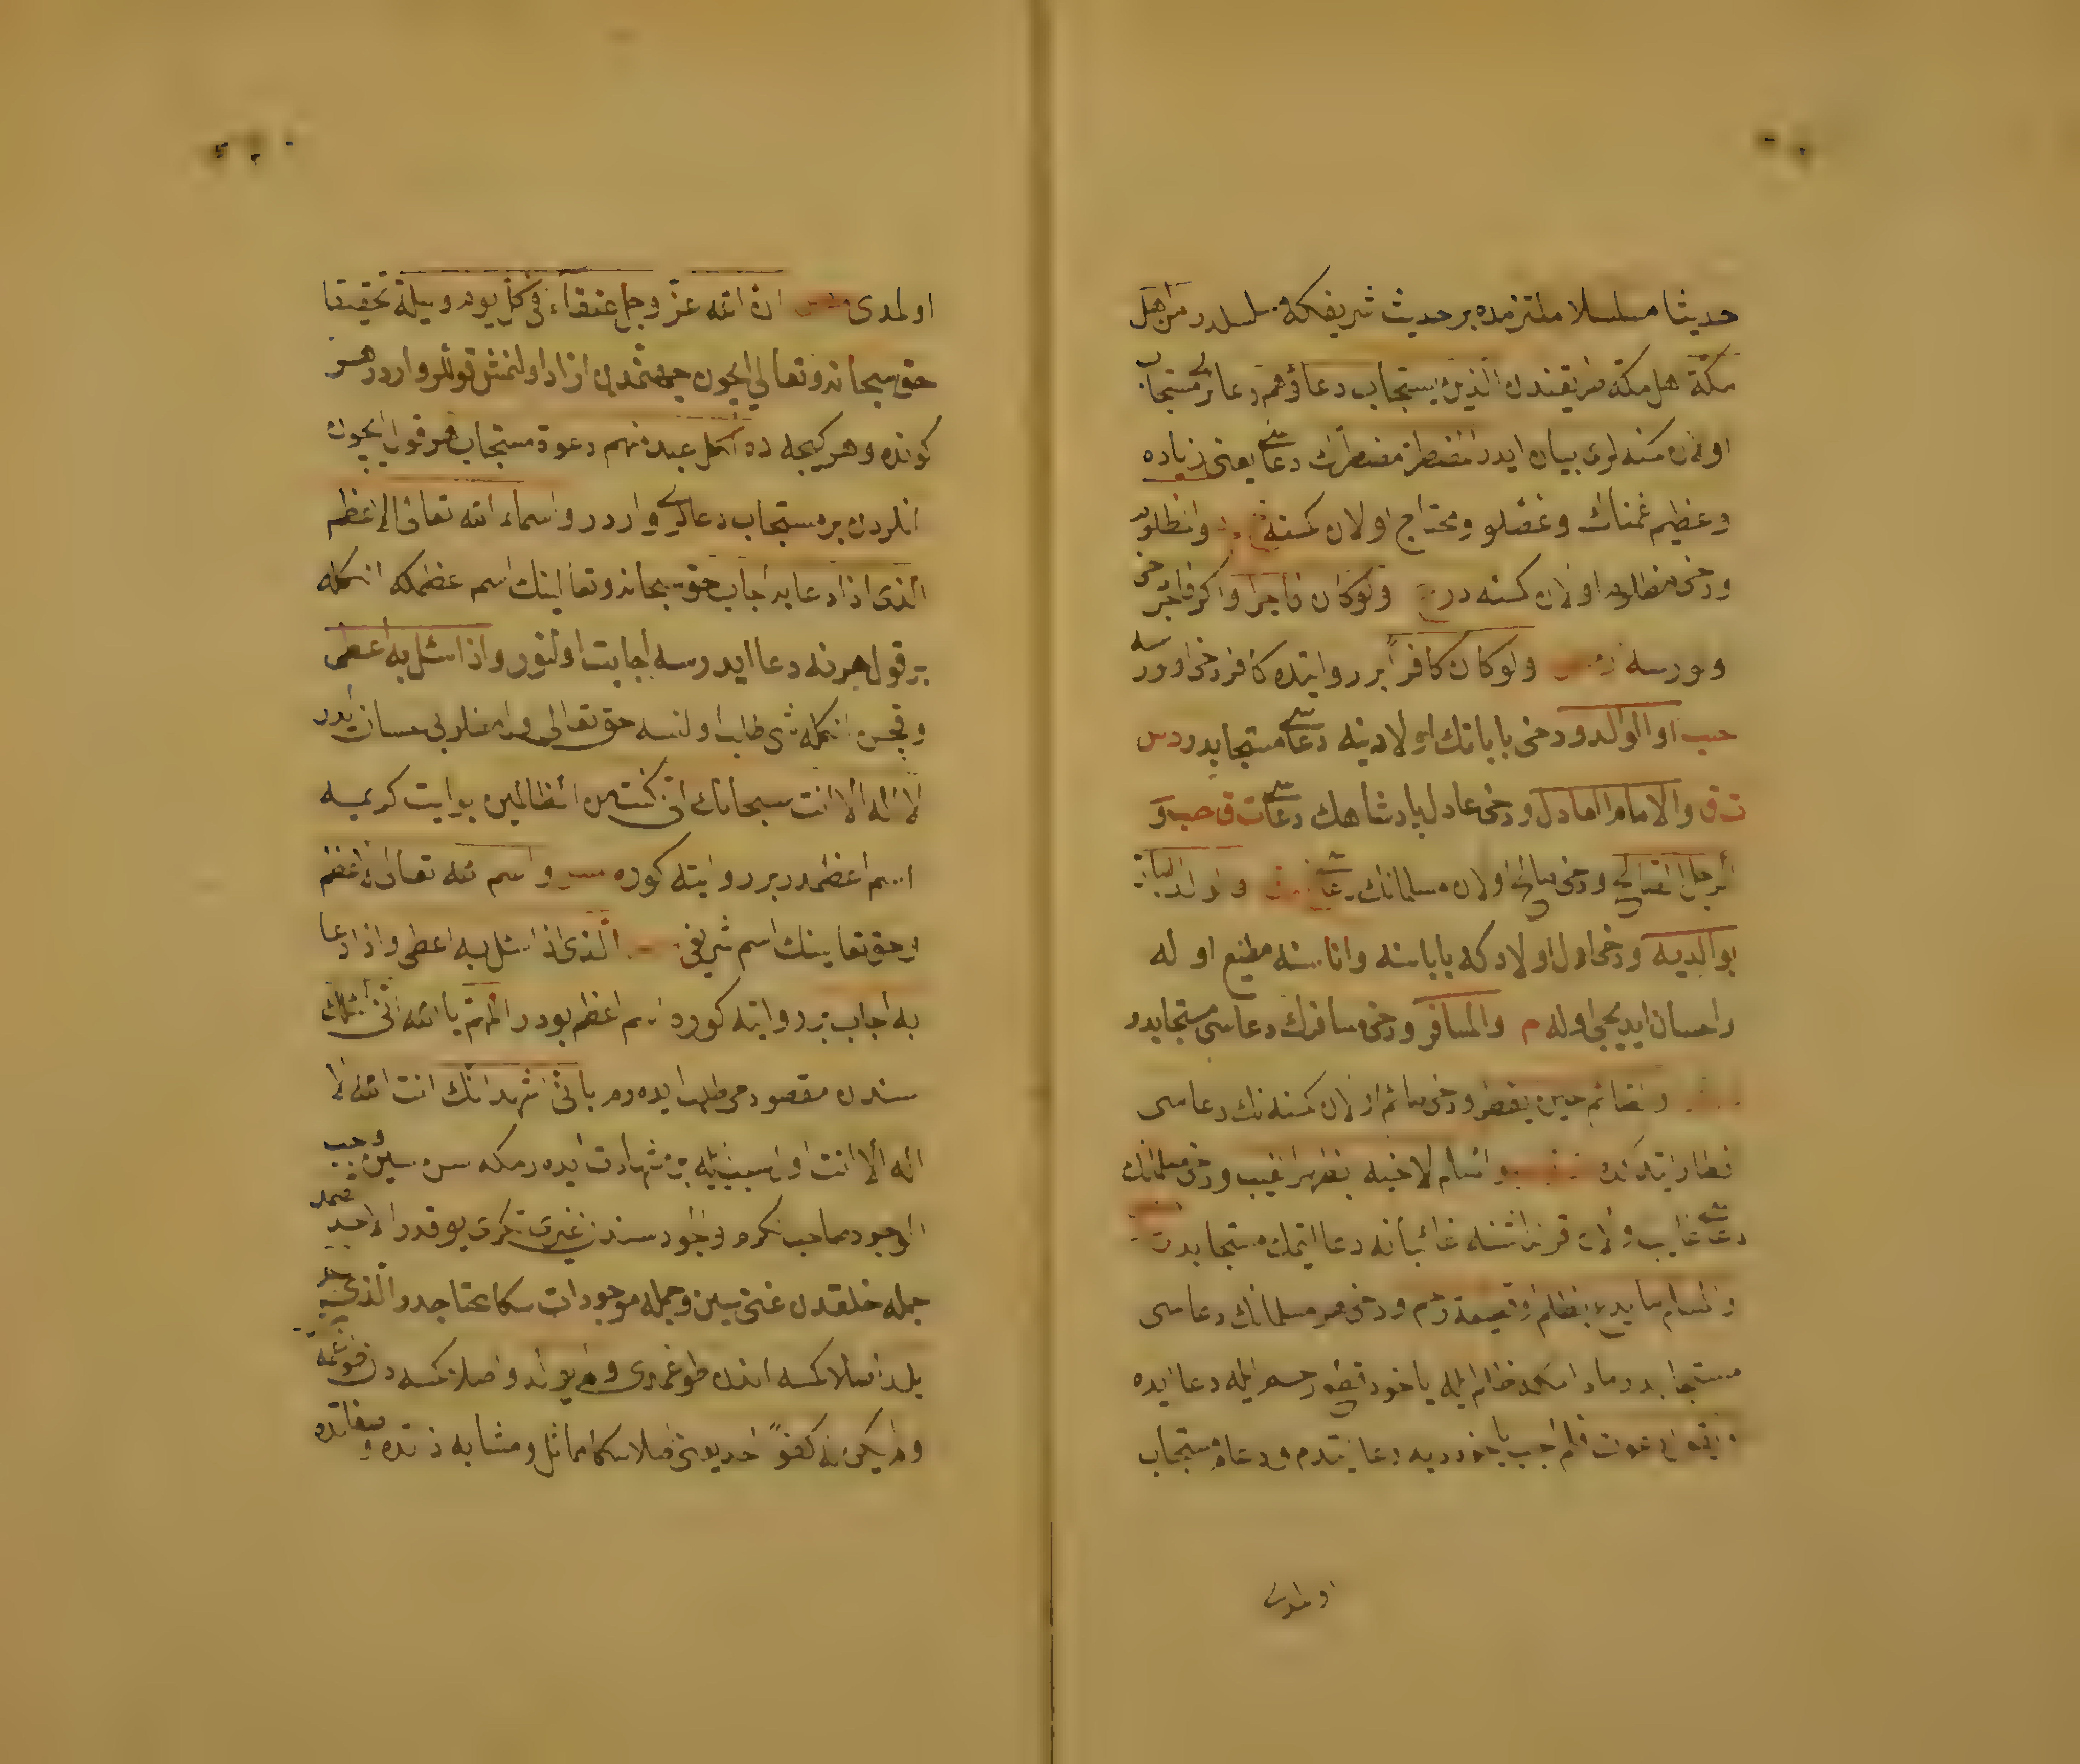 حديثا مسلسلا ملتزمده بر حديث شريفكه مسلسلدر من اهل
مكة اهل مكه طريقندن الذين يستجاب دعاؤهم دعالرى مستجاب
اولان كسنه لرى بيان ايدر المضطر مضطرك دعاسى يعنى زياده
وعظيم غمناك وغصلو ومحتاج اولان كسنه والمظلوم
ودخى مظلوم اولان كسنه در ولو كان فاجرا واكر فاجر دخى
اولورسه ولو كان كافرا بر روايتده كافر دخى اولورسه
حب والوالد ودخى بابانك اولادينه دعاسى مستجابدر د س
ت ق والامام العادل ودخى عادل پادشاهك دعاسى ت ق حب و
الرجل الصالح ودخى صالح اولان مسلمانك دعاسى والولد البار
بوالديه ودخى اول اولادكه باباسنه واناسنه مطيع اوله
واحسان ايديجى اوله م والمسافر ودخى مسافرك دعاسى مستجابدر
والصائم حين يفطر ودخى صائم اولان كسنه نك دعاسى
افطار ايتدكده والمسلم لاخيه بظهر الغيب ودخى مسلمانك
دعاسى غايب اولان قرنداشنه غائبانه دعا ايتمك مستجابدر
والمسلم ما لم يدع بظلم او قطيعة رحم ودخى هر مسلمانك دعاسى
مستجابدر مادامكه ظلم ايله ياخود قطع رحم ايله دعا ايده
او يقول دعوت فلم اجب ياخود ديه دعا ايتدم ودعام مستجاب
اولمدى
اولمدى ان الله عز وجل عتقاء فى كل يوم وليلة تحقيقا
حق سبحانه وتعالى ايچون جهنمدن ازاد اولنمش قوللر واردر هر
كونده وهر كيجه ده لكل عبد منهم دعوة مستجاب هر قول ايچون
انلردن بر مستجاب دعالرى واردر واسماء الله تعالى الاعظم
الذى اذا دعا به اجاب حق سبحانه وتعالينك اسم عظمكه انكله
بر قول هر نه دعا ايدرسه اجابت اولنور واذا سئل به اعطى
وقچن انكله شى طلب اولنسه حق تعالى ومطلوبى احسان ايدر
لا اله الا انت سبحانك انى كنت من الظالمين بو ايت كريمه
اسم اعظمدر بر روايته كوره واسم الله تعالى الاعظم
وحق تعالينك اسم شريفى الذى اذا سئل به اعطى واذا دعا
به اجاب بر روايته كوره اسم اعظم بودر اللهم يا الله انى اسئلك
سندن مقصودمى طلب ايده رم بانى اشهد انك انت الله لا
اله الا انت اول سببيله بن شهادت ايده رمكه سن سين واجب
الوجود صاحب كرم وجود سندن غيرى تكرى يوقدر الاحد الصمد
جمله خلقدن غنى سين وجمله موجودات سكا محتاجدر الذى لم
يلد اصلا كمسه اندن طوغمدى ولم يولد واصلا كمسه دن طوغمه
ولم يكن له كفوا احد يعنى اصلا سكا مماثل ومشابه ذاتده وصفاتده